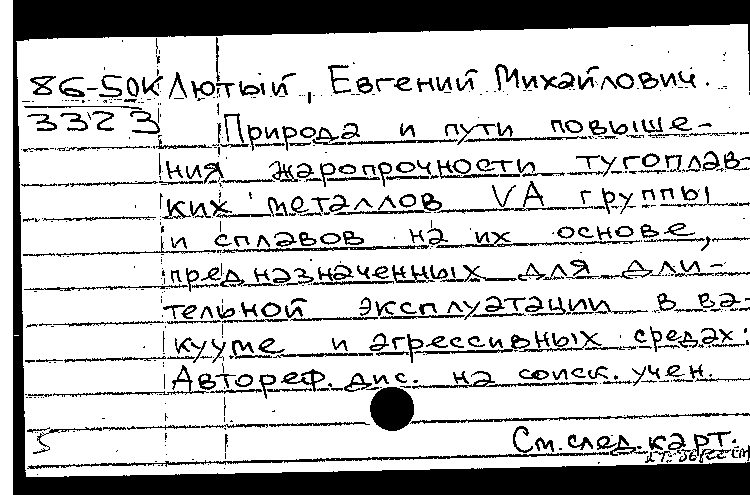 86-50К Лютый, Евгений Михайлович.
3323 Природа и пути повыше-
ния жаропрочности тугоплав-
ких металлов VA группы
и сплавов на их основе,
предназначенных для дли-
тельной эксплуатации в ва-
кууме и агрессивных средах:
Автореф. дис. на соиск. учен.
5 См. след. карт.